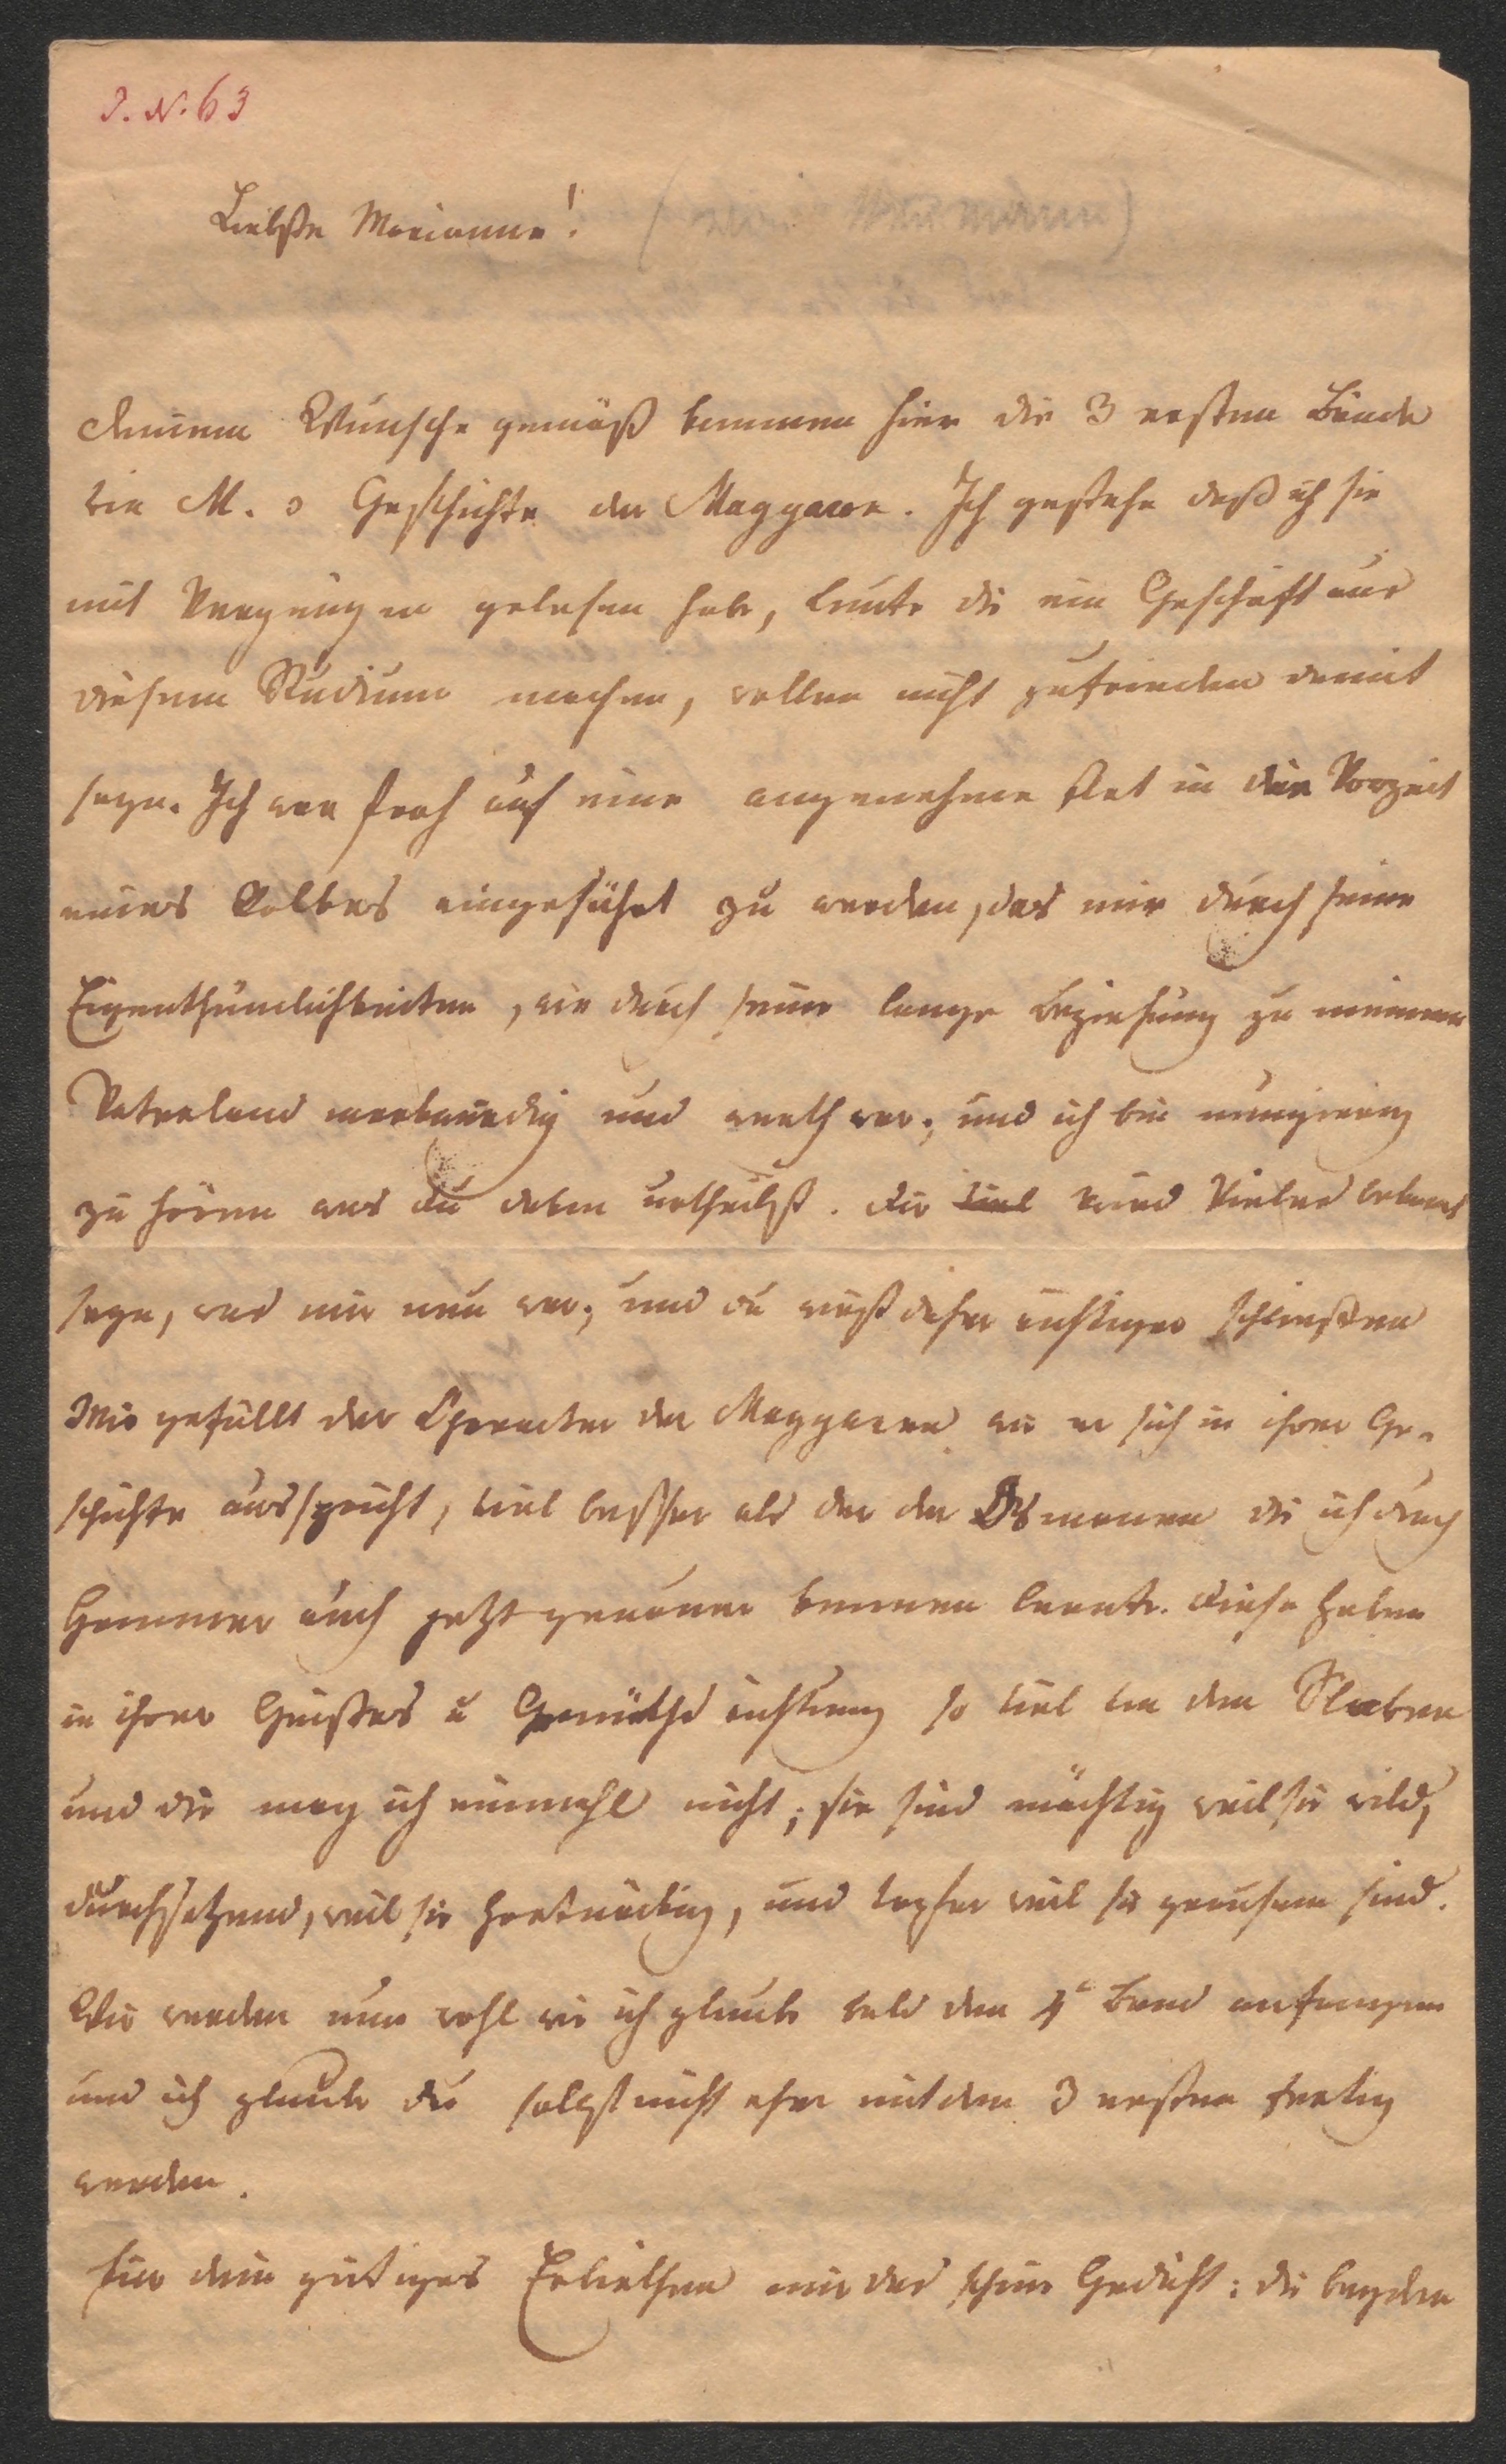 J. N. 63
Liebste Marianne! (
deinem Wunsche gemäß kommen hier die 3 ersten Bände
von M. s Geschichte der Magyaren. Ich gestehe daß ich sie
mit Vergnügen gelesen habe, Leute die ein Geschäft aus
diesem Studium machen, wollen nicht zufrieden damit
seyn. Ich war froh auf eine angenehme Art in die Vorzeit
eines Volkes eingeführt zu werden, das mir durch seine
Eigenthümlichkeiten, wie durch seine lange Beziehung zu meinem
Vaterland merkwürdig und werth war; und ich bin neugierig
zu hören was du davon urtheilst. Dir viel wird Vieles bekannt
seyn, was mir neu war; und du wirst daher richtiger schließen
Mir gefällt der Character der Magyaren wie er sich in ihrer Ge-
schichte ausspricht, viel besser als der der Osmanen die ich durch
Hammer auch jetzt genauer kennen lernte. Diese haben
in ihrer Geistes u Gemüths richtung so viel von den Slaven
und die mag ich einmahl nicht; sie sind mächtig weil sie wild,
durchsetzend, weil sie hartnäckig, und tapfer weil sie grausam sind.
Wir werden nun wohl wie ich glaube bald den 4t Band anfangen
und ich glaube du sollst nicht eher mit den 3 ersten fertig
werden.
Für dein gütiges Erbiethen mir das schöne Gedicht: die beyden